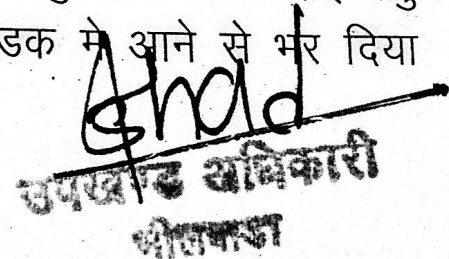 डक मे आने से भर दिया
उपखण्ड अधिकारी
भीलवाडा